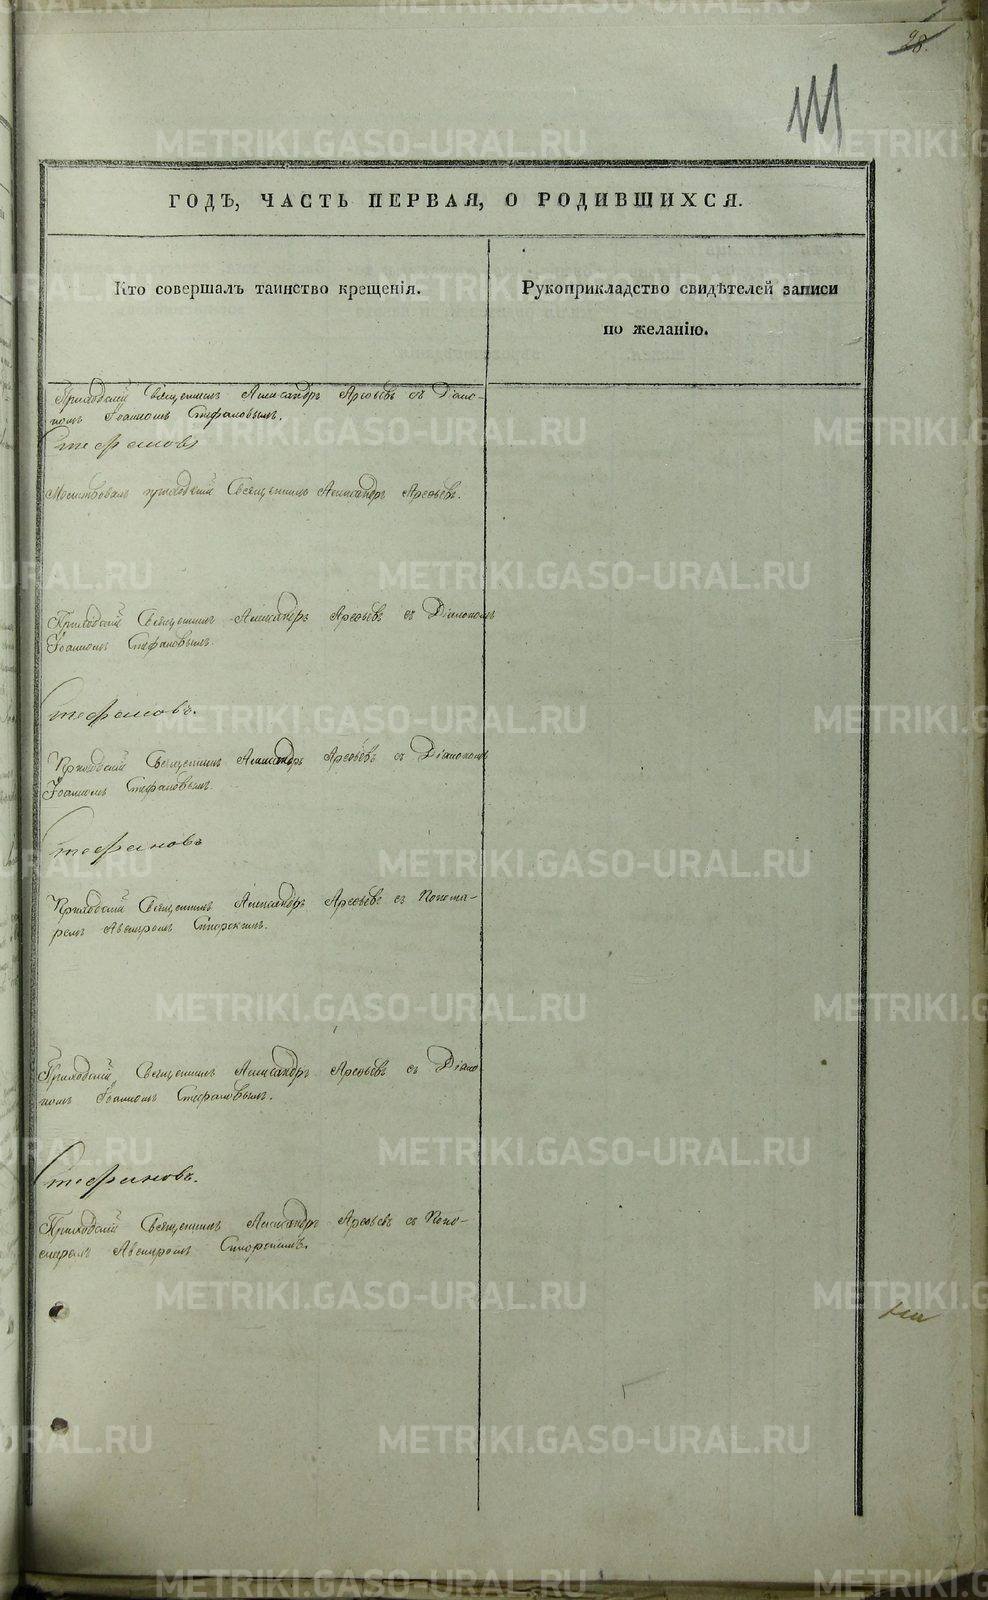 98.
ГОДЪ, ЧАСТЬ ПЕРВАЯ, О РОДИВШИХСЯ.
Кто совершалъ таинство крещенія.
Рукоприкладство свидѣтелей записи
по желанію.
Приходскій Священникъ Александръ Арефьевъ съ Діако-
номъ Іоанномъ Стефановымъ.
Стефановъ
Молитвовалъ приходскій Священникъ Александръ Арефьевъ.
Приходскій Священникъ Александръ Арефьевъ съ Діакономъ
Іоанномъ Стефановымъ.
Стефановъ.
Приходскій Священникъ Александръ Арефьевъ съ Діакономъ
Іоанномъ Стефановымъ.
Стефановъ
Приходскій Священникъ Александръ Арефьевъ съ Понома-
ремъ Авениромъ
Приходскій Священникъ Александръ Арефьевъ съ Діако
номъ Іоанномъ Стефановымъ.
Стефановъ.
Приходскій Священникъ Александръ Арефьевъ съ Поно-
маремъ Авениромъ
METRIKI.GASO-URAL.RU